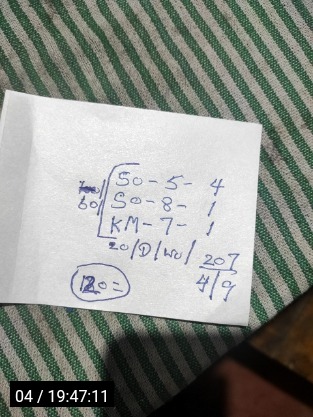 SO - 5 - 4
60/ SO - 8 - 1
KM - 7 - 1
20/D/wo/ 207
4/9
120=
04 / 19:47:11